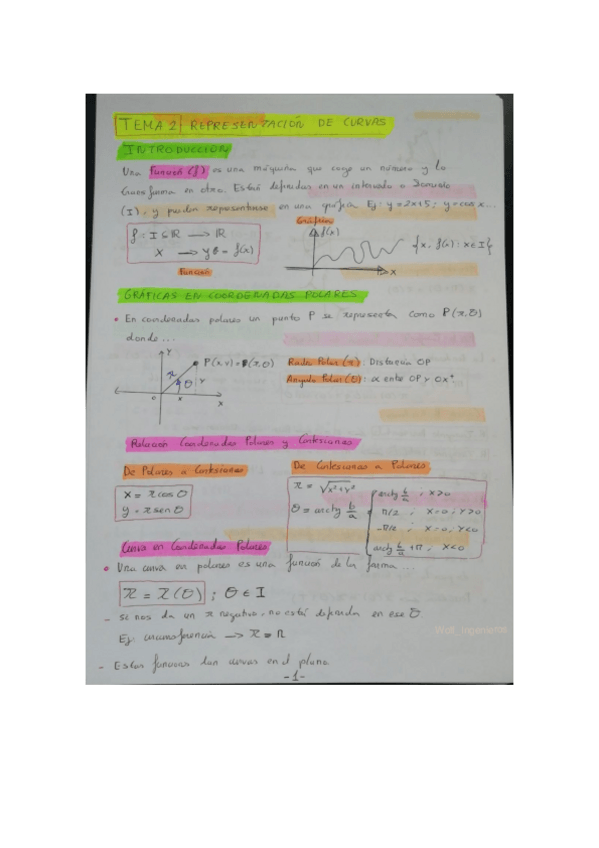 TEMA 2 | REPRESENTACIÓN DE CURVAS
INTRODUCCIÓN
Una Función (f) es una máquina que coge un número y lo
transforma en otro. Están definidas en un intervalo o Dominio
(I), y pueden representarse en una gráfica Ej: y = 2x+5; y = cos x...
Gráfica
f: I ⊆ ℝ → ℝ
f(x)
{x, f(x): x ∈ I}
x
Función
GRÁFICAS EN COORDENADAS POLARES
• En coordenadas polares un punto P se representa como P(r,θ)
donde...
Y
P(x,y) = P(r,θ)
Radio Polar (r): Distancia OP
Angulo Polar (θ): α entre OP y OX⁺
r
θ
Y
O
x
X
Relación Coordenadas Polares y Cartesianas
De Polares a Cartesianas
De Cartesianas a Polares
x = r cos θ
y = r sen θ
r = √x²+y²
θ = arctg b/a
arctg b/a ; x>0
π/2 ; x=0; y>0
-π/2 ; x=0; y<0
arctg b/a + π ; x<0
Curva en Coordenadas Polares
• Una curva en polares es una función de la forma...
r = r(θ) ; θ ∈ I
- Si nos da un r negativo, no está definida en ese θ
Ej: circunferencia → r = R
- Estas funciones dan curvas en el plano.
-1-